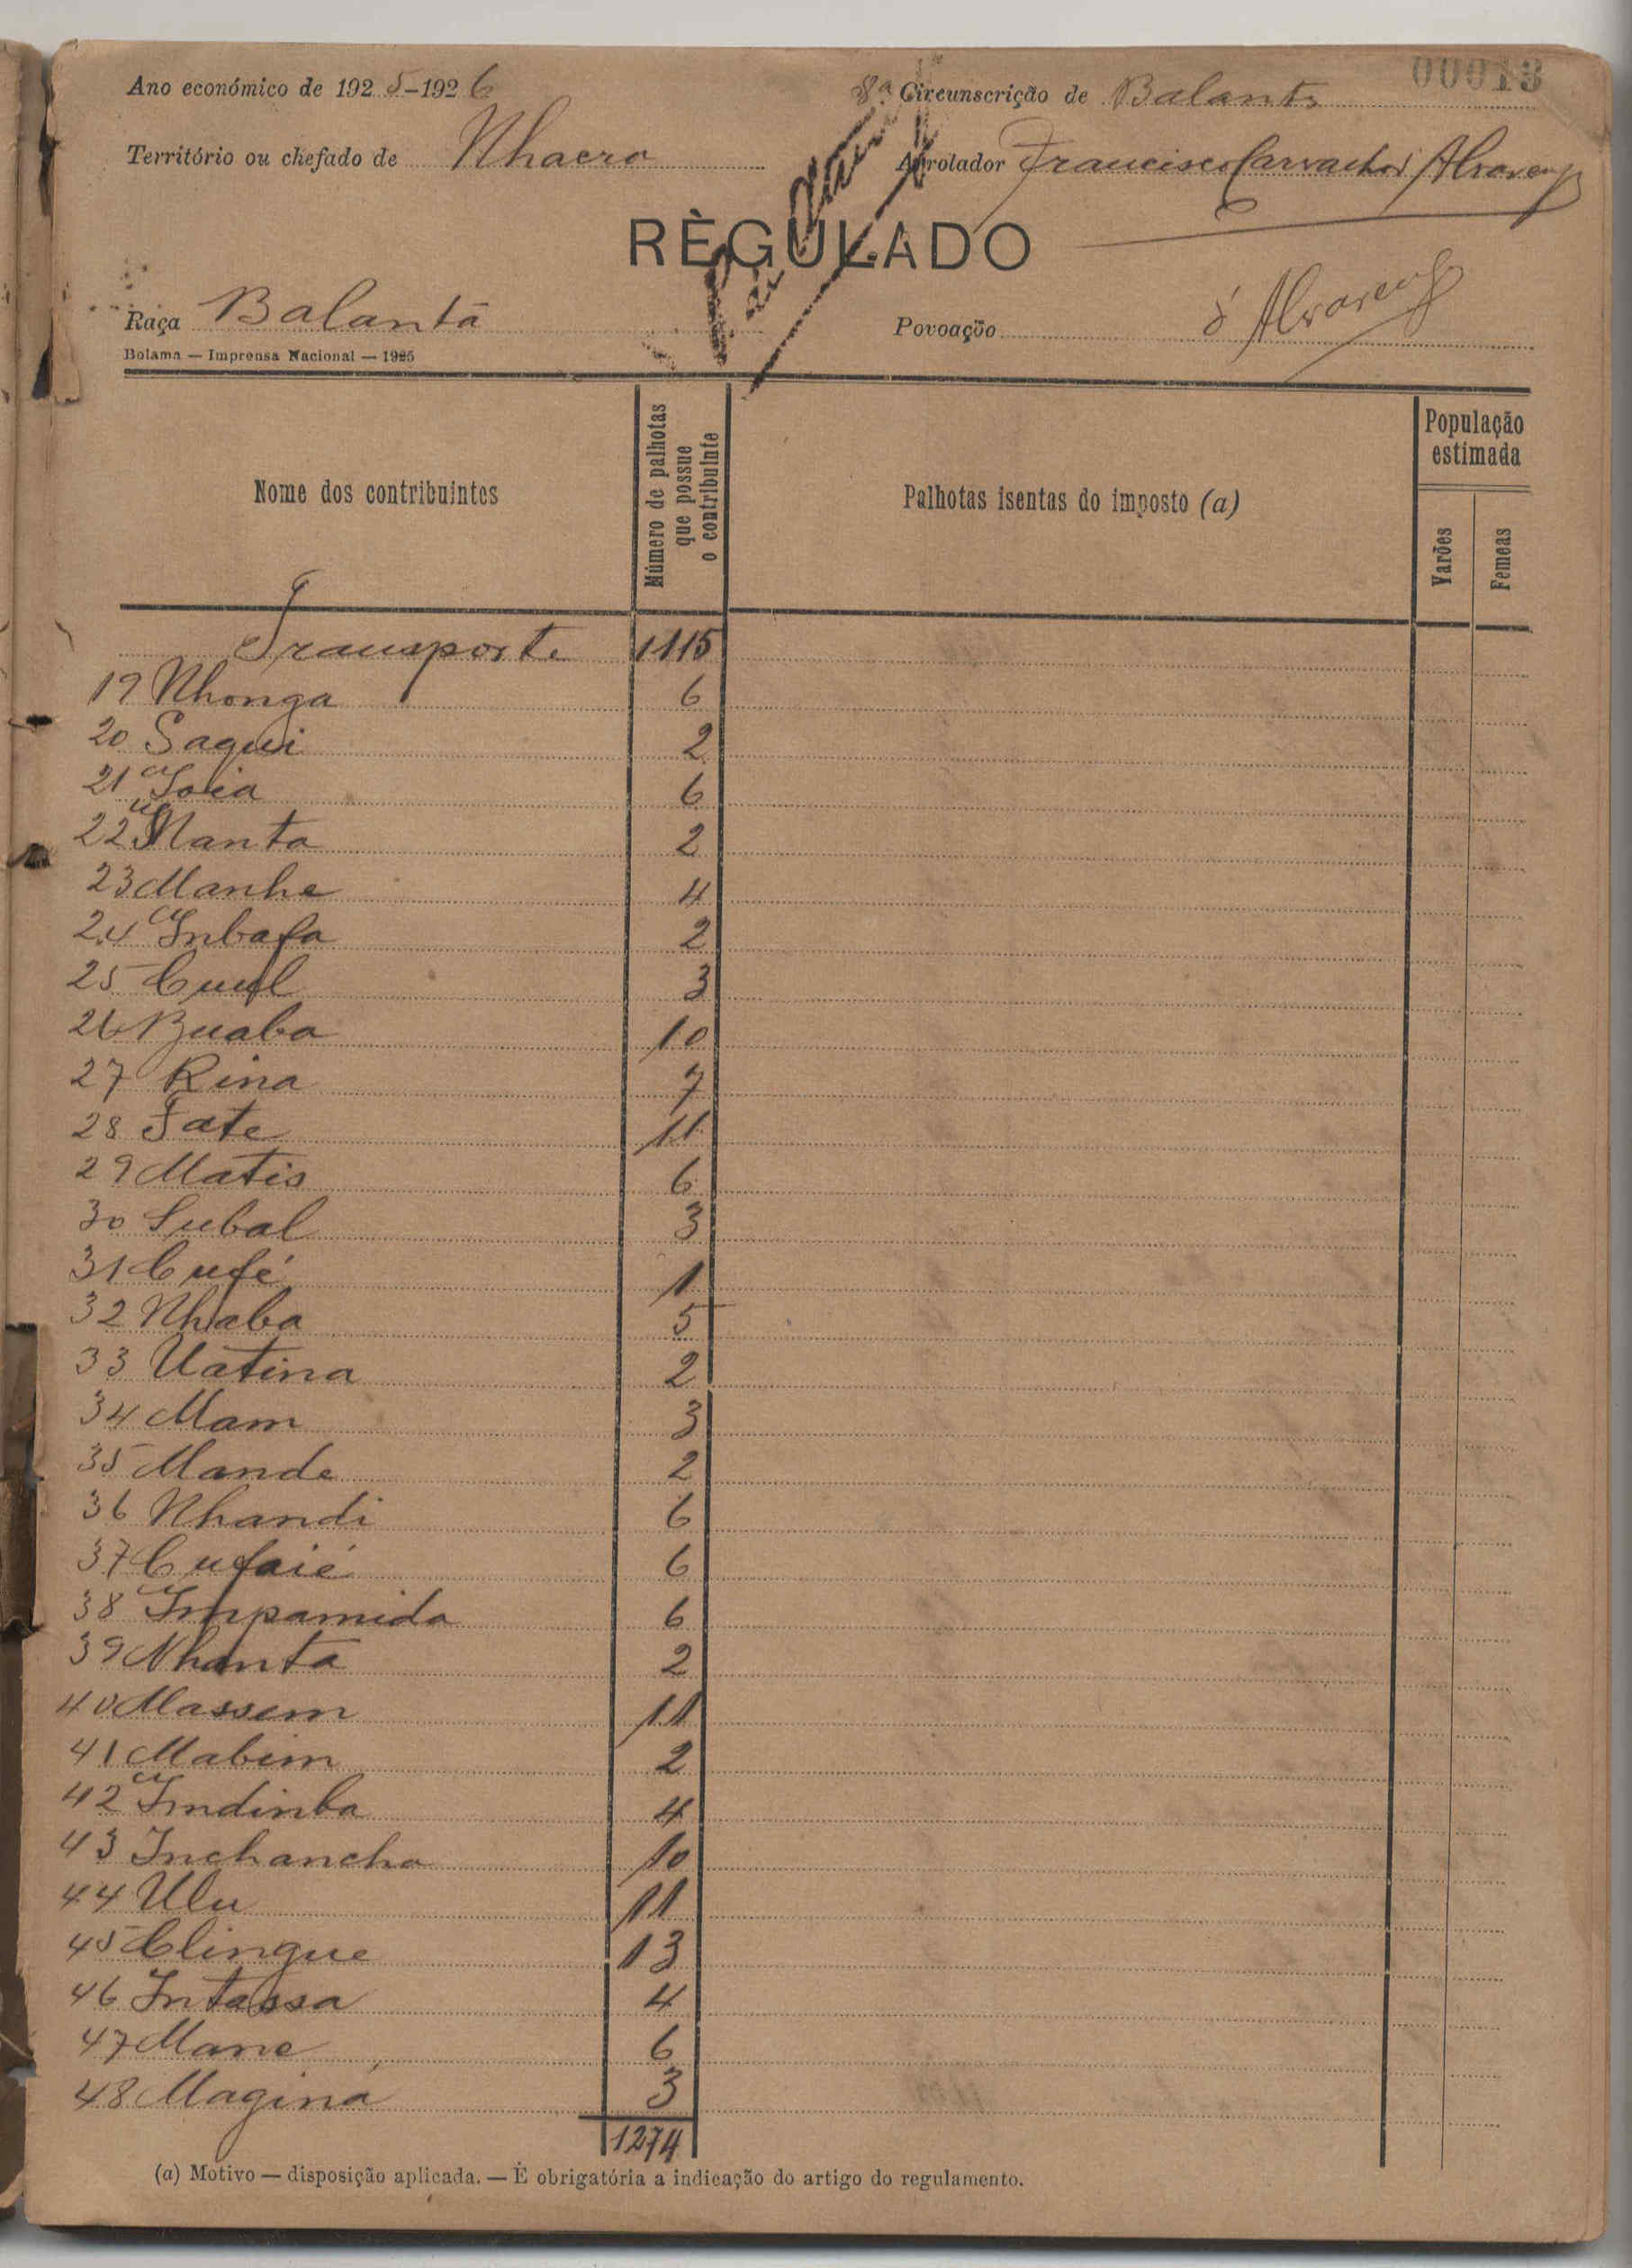 00013
Ano económico de 1925-1926
8ª Circunscrição de Balanta
Território ou chefado de Nhacra
Arrolador Francisco Carvalho Alvarenga
RÈGULADO
Raça Balantã
Povoação Alvarenga
Bolama — Imprensa Nacional — 1925
Nome dos contribuintes
Número de palhotas que possue o contribuinte
Palhotas isentas do imposto (a)
População estimada
Varões
Femeas
Transporte 1115
19 Nhonga 6
20 Saqui 2
21 Joia 6
22 Nanta 2
23 Manhe 4
24 Inbafa 2
25 3
26 Buaba 10
27 Rina 7
28 Fate 11
29 Matis 6
30 Subal 3
31 Cufé 1
32 Nhaba 5
33 Uatina 2
34 Mam 3
35 Mande 2
36 Nhandi 6
37 Cufaié 6
38 Impamida 6
39 Nhanta 2
40 Massem 11
41 Mabim 2
42 Indinba 4
43 Inchancha 10
44 Ulu 11
45 Clingue 13
46 Intassa 4
47 Mane 6
48 Maginá 3
1274
(a) Motivo — disposição aplicada. — É obrigatória a indicação do artigo do regulamento.